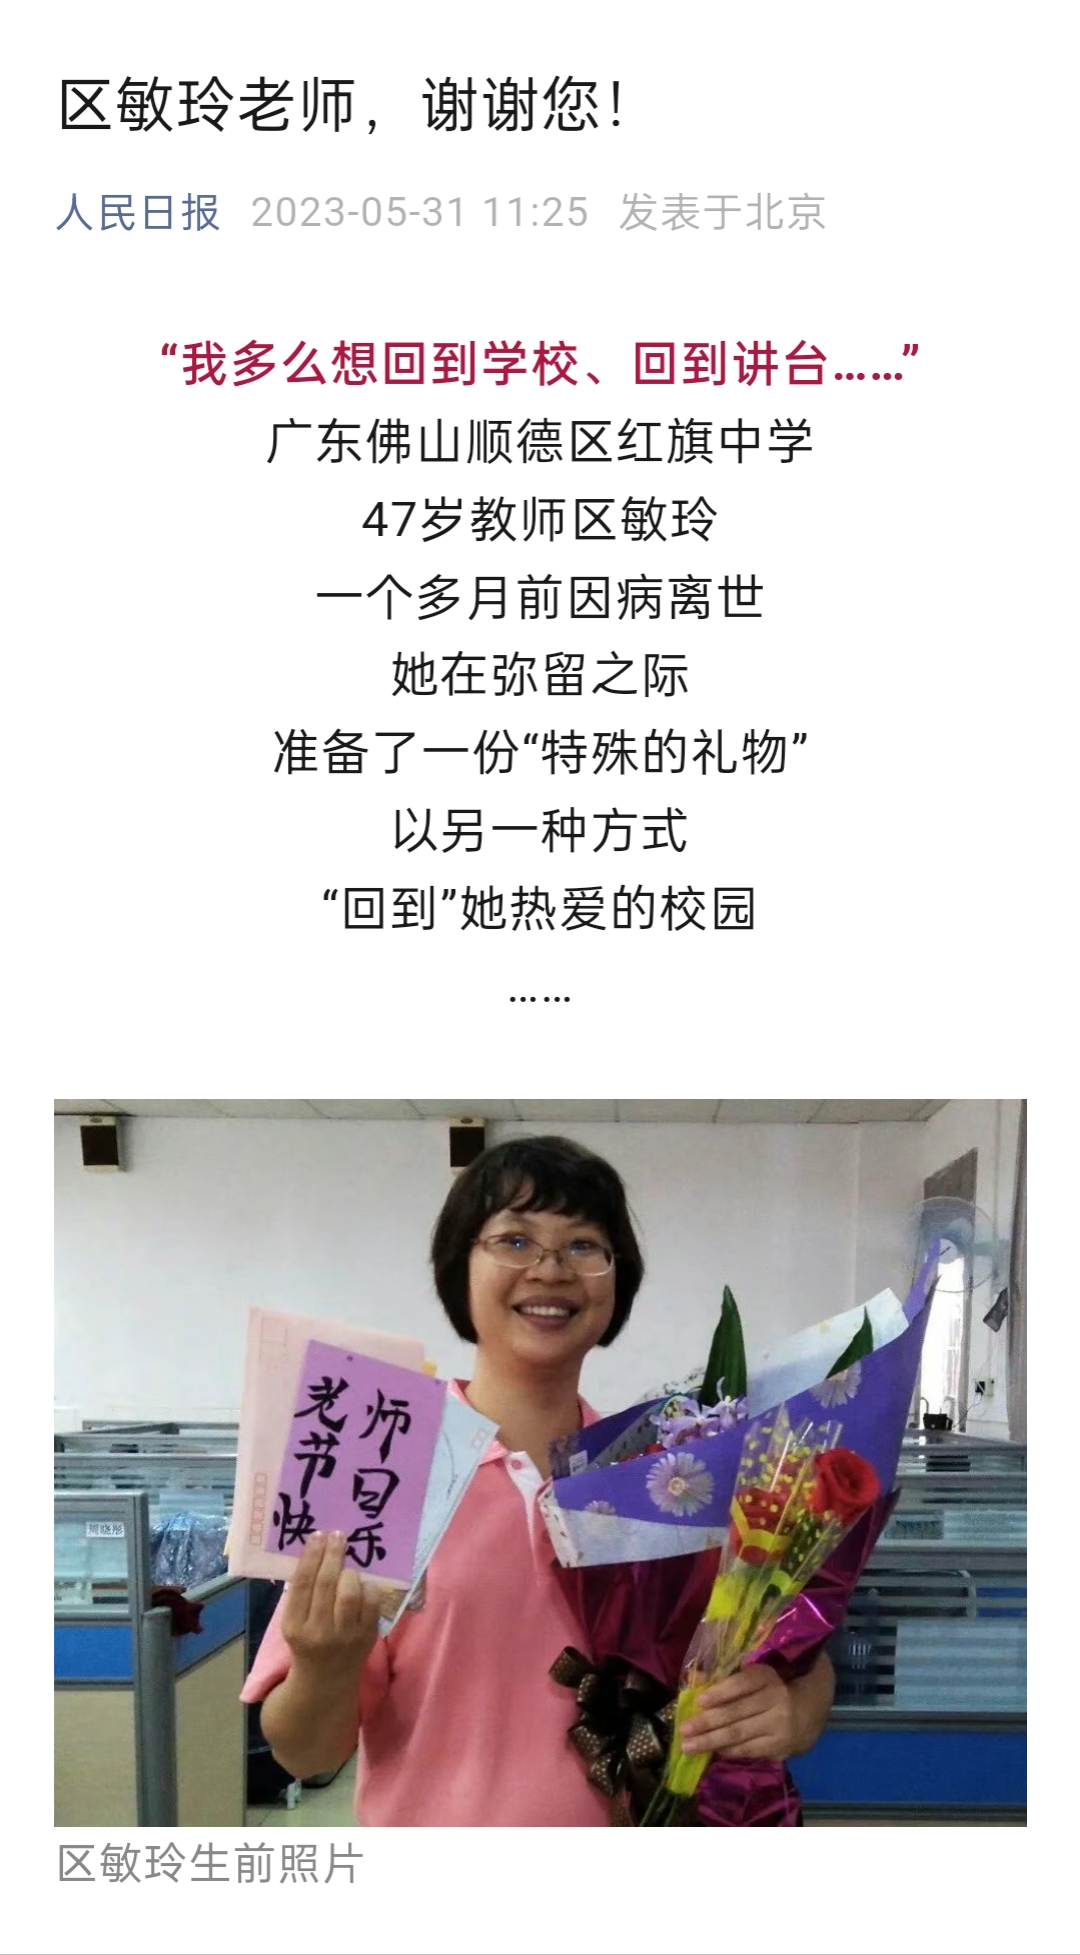 区敏玲老师，谢谢您！
人民日报 2023-05-31 11:25 发表于北京
“我多么想回到学校、回到讲台……”
广东佛山顺德区红旗中学
47岁教师区敏玲
一个多月前因病离世
她在弥留之际
准备了一份“特殊的礼物”
以另一种方式
“回到”她热爱的校园
……
老师
节日
快乐
区敏玲生前照片